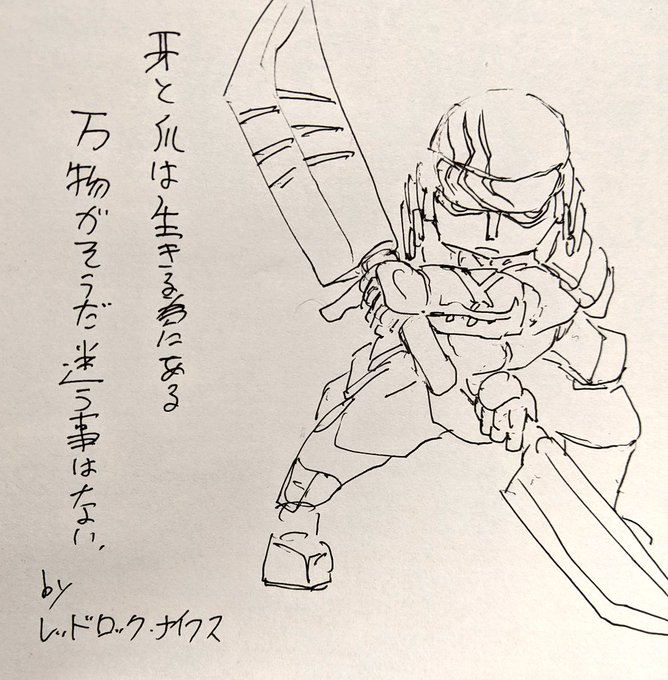 牙と爪は生きる為にある
万物がそうだ迷う事はない、
by
レッドロック・ナイフス